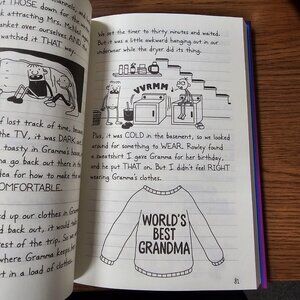 put THOSE down for the
attracting Mrs. M
anket over ourselves AND
watched it THAT way.
lost track of time, because
the TV, it was DARK
toasty in Gramma's
go back out there in the
idea for how to make the
COMFORTABLE.
up our clothes in Gramma's
and back out, it would
rest of the trip. So w
where Gramma keeps her
t in a load of clothes.
We set the timer to thirty minutes and waited.
But it was a little awkward hanging out in our
underwear while the dryer did its thing.
VVRMM
Plus, it was COLD in the basement, so we looked
around for something to WEAR. Rowley found
a sweatshirt I gave Gramma for her birthday,
and he put THAT on. But I didn't feel RIGHT
wearing Gramma's clothes.
WORLD'S
BEST
GRANDMA
81